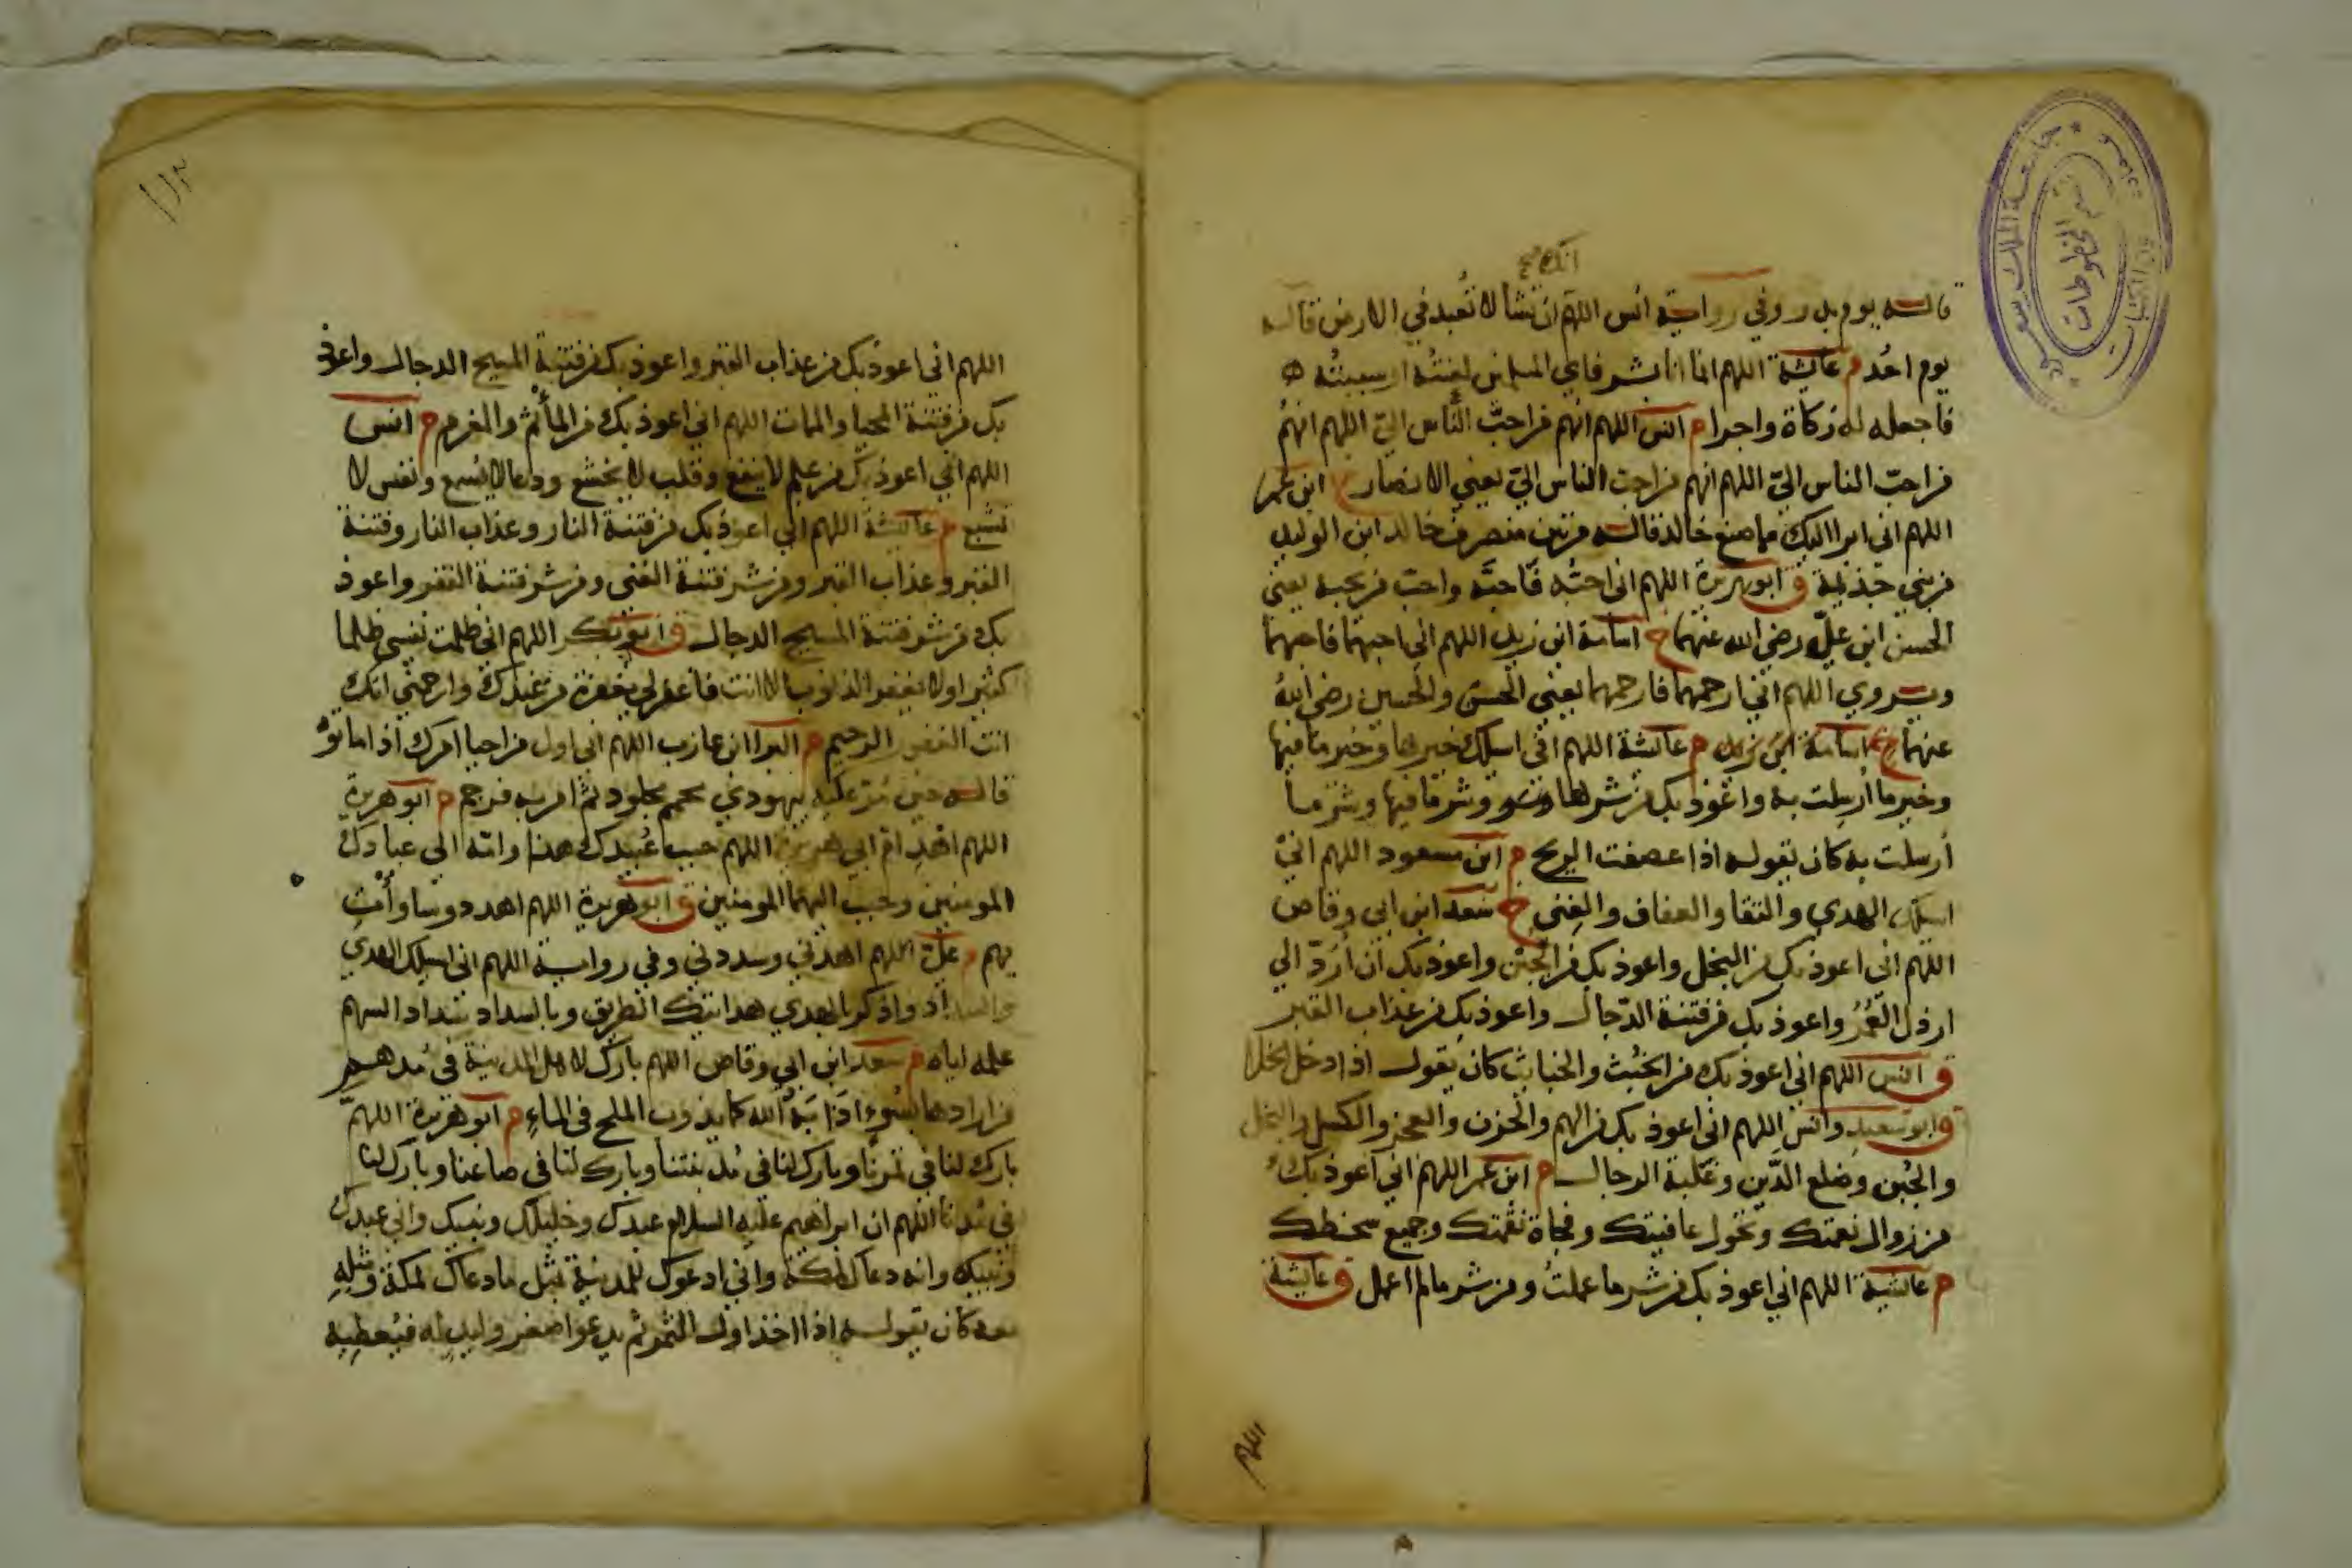 انك صح
قاله يوم بدر وفي رواية انس اللهم ان تشا لا تعبد في الارض قاله
يوم احُد م عائشة اللهم انما انا بشر فاي المسلمين لعنتُه او سببتُه
فاجعله له زكاة واجرا م انس اللهم انهم من احبّ النّاس اليّ اللهم انهم
من احبّ الناس اليّ اللهم انهم من احب الناس اليّ يعني الانصار خ ابن عمر
اللهم اني ابرا اليك مما صنع خالد قاله مرتين منصرف خالد ابن الوليد
من بني جذيمة ق ابو هريرة اللهم اني احبُّه فاحبَّه واحبّ من يحبه يعني
الحسن ابن عليّ رضي الله عنهما خ اسامة ابن زيد اللهم اني احبهما فاحبهما
ويروي اللهم اني ارحمهما فارحمهما يعني الحسن والحسين رضي الله
عنهما خ اسامة ابن زيد م عائشة اللهم اني اسلك خيرها وخير ما فيها
وخير ما أرسلت به واعوذ بك من شرها وشر ما فيها وشر ما
أرسلت به كان يقوله اذا عصفت الريح م ابن مسعود اللهم اني
اسلك الهدي والتقا والعفاف والغِنى خ سعد ابن ابي وقاص
اللهم اني اعوذ بك من البخل واعوذ بك من الجبْن واعوذ بك ان أرَدّ الي
ارذل العُمُر واعوذ بك من فتنة الدّجال واعوذ بك من عذاب القبر
ق انس اللهم اني اعوذ بك من الخبُث والخبايث كان يقول اذا دخل الخلا
ق ابو سعيد وانس اللهم اني اعوذ بك من الهم والحزن والعجز والكسل والبخل
والجُبن وضلع الدَّين وغلبة الرجال م ابن عمر اللهم اني اعوذ بك
من زوال نعمتك وتحول عافيتك وفجاة نقمتك وجميع سخطك
م عائشة اللهم اني اعوذ بك من شر ما عملتُ ومن شر ما لم اعمل ق عائشة
اللهم
اللهم اني اعوذ بك من عذاب القبر واعوذ بك من فتنة المسيح الدجال واعوذ
بك من فتنة المحيا والممات اللهم اني اعوذ بك من المأثم والمغرم م انس
اللهم اني اعوذ بك من علم لا ينفع وقلب لا يخشع ودعا لا يُسمع ونفس لا
تشبع م عائشة اللهم اني اعوذ بك من فتنة النار وعذاب النار وفتنة
القبر وعذاب القبر ومن شر فتنة الغنى ومن شر فتنة الفقر واعوذ
بك من شر فتنة المسيح الدجال ق ابو بكر اللهم اني ظلمت نفسي ظلما
كثيرا ولا يغفر الذنوب الا انت فاغفر لي مغفرة من عندك وارحمني انك
انت الغفور الرحيم م البرا ابن عازب اللهم اني اول من احيا امرك اذ اماتوُ
قاله حين مُرّ عليه بيهودي محمم مجلود ثم امر به فرجم م ابو هريرة
اللهم اهْدِ امّ ابي هريرة اللهم حبب عُبيدك هذا وامّه الي عبادك
المومنين وحبب اليهما المومنين ق ابو هريرة اللهم اهد دوسا وأْتِ
بهم م عليّ اللهم اهدني وسددني وفي رواية اللهم اني اسلك الهدي
والسداد واذكر بالهدي هدايتك الطريق وبالسداد سداد السهم
علمه اياه م سعد ابن ابي وقاص اللهم بارك لاهل المدينة في مُدهم
من ارادها بسُوءٍ اذابَهُ الله كما يذوب الملح في الماءِ م ابو هريرة اللهمّ
بارك لنا في ثمرنا وبارك لنا في مدينتنا وبارك لنا في صاعنا وبارك لنا
في مُدنا اللهم ان ابراهيم عليه السلام عبدك وخليلك ونبيك واني عبدك
ونبيك وانه دعاك لمكة واني ادعوك للمدينة بمثل ما دعاك لمكة ومثلِهِ
معه كان يقوله اذا اخذ اول الثمر ثم يدعو اصغر وليدٍ له فيُعطيه